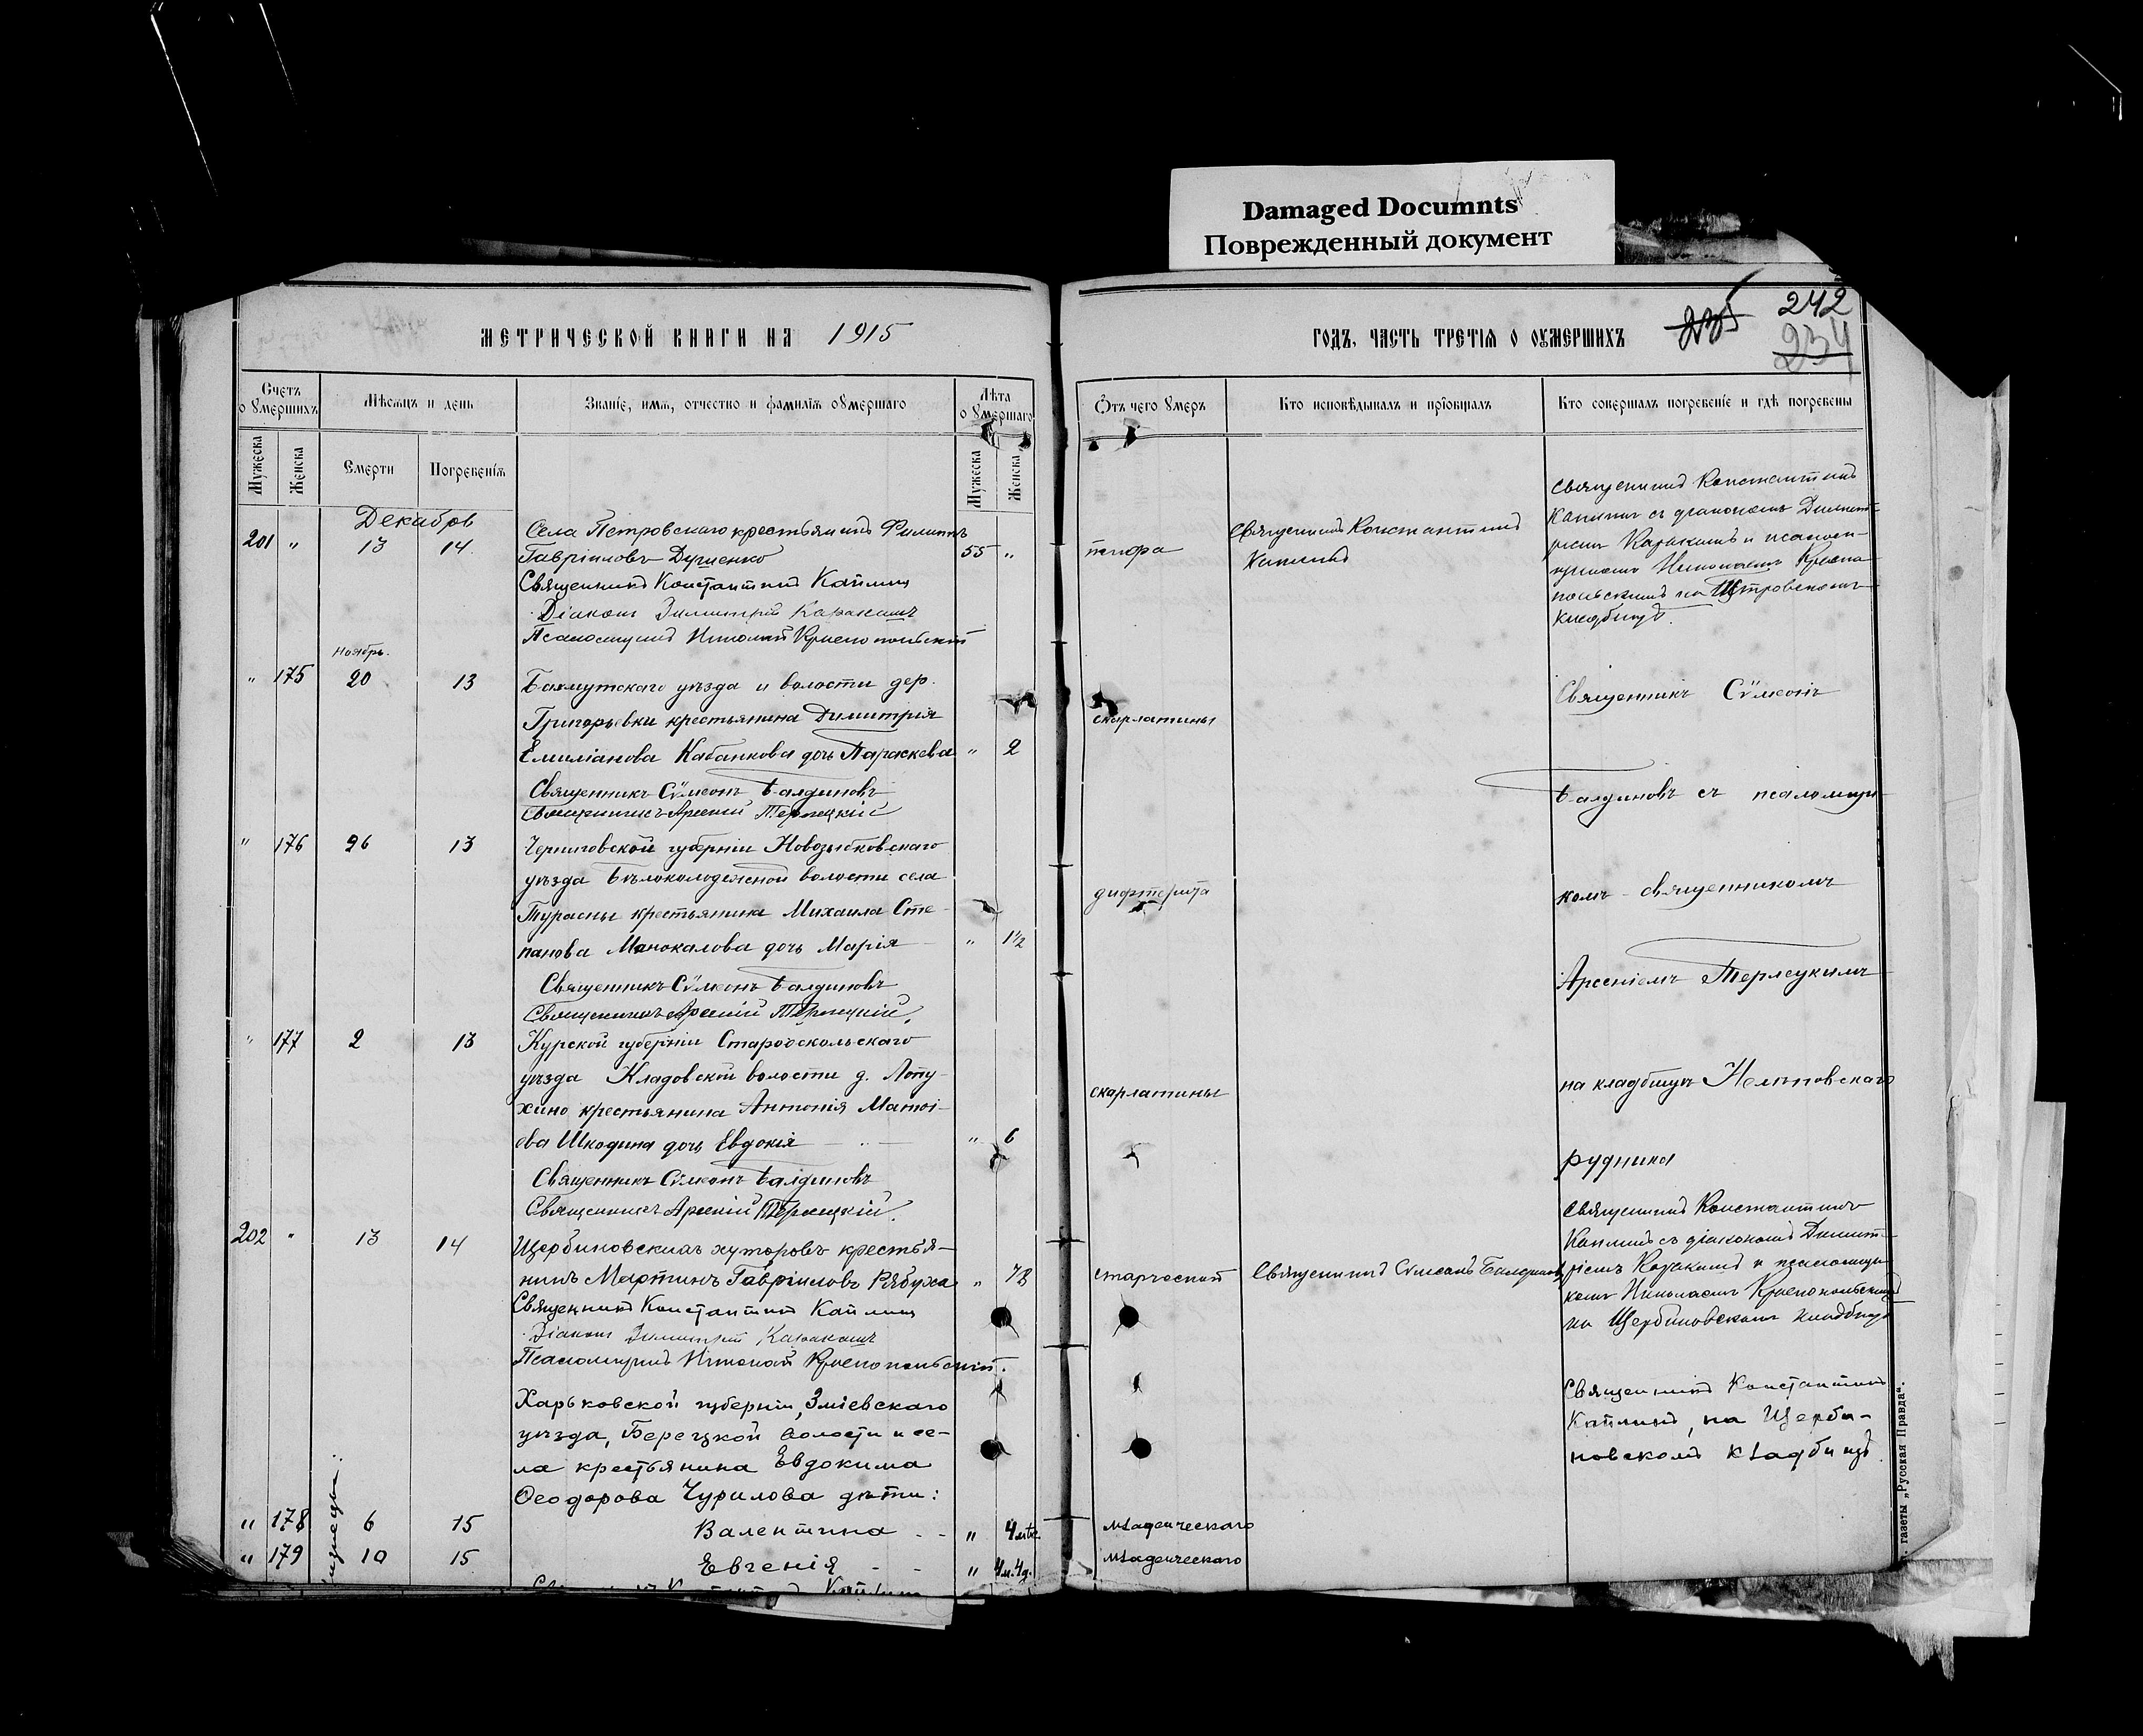 Damaged Documnts
Поврежденный документ
МЕТРИЧЕСКОЙ КНИГИ НА 1915
ГОДЪ, ЧАСТЬ ТРЕТІѦ О ОУМЕРШИХЪ
235 242
234
Счетъ о Умершихъ
Мѣсяцъ и день
Званіе, имѧ, отчество и фамиліѧ оУмершаго
Лѣта оУмершаго
Мужеска
Женска
Смерти
Погребеніѧ
Мужеска
Женска
Ѿтъ чего Умеръ
Кто исповѣдывалъ и прїобщалъ
Кто совершалъ погребеніе и гдѣ погребены
Декабрь
201 " 13 14
Села Петровскаго крестьянинъ Филиппъ
Гавріиловъ Дуценко 55 "
Священникъ Константинъ Каплинъ
Діаконъ Димитрій Каракашъ
Псаломщикъ Николай Краснопольскій
тифа
Священникъ Константинъ
Каплинъ
Священникъ Константинъ
Каплинъ съ діакономъ Димит-
ріемъ Каракашъ и псалом-
щикомъ Николаемъ Красно-
польскимъ на Петровскомъ
кладбищѣ.
Ноябрь.
" 175 20 13
Бахмутскаго уѣзда и волости дер.
Григорьевки крестьянина Димитрія
Емиліанова Кабанкова дочь Параскева " 2
Священникъ Сѵмеонъ Балдиновъ
Священникъ Арсеній Терлецкій
скарлатины
Священникъ Сѵмеонъ
Балдиновъ съ псаломщи-
" 176 26 13
Черниговской губерніи Новозыбковскаго
уѣзда Бѣлоколодезной волости села
Турасны крестьянина Михаила Сте-
панова Манокалова дочь Марія " 1½
Священникъ Сѵмеонъ Балдиновъ
Священникъ Арсеній Терлецкій.
дифтерита
комъ - священникомъ
Арсеніемъ Терлецкимъ
" 177 2 13
Курской губерніи Старооскольскаго
уѣзда Кладовской волости д. Лопу-
хино крестьянина Антонія Матѳі-
ева Шкодина дочь Евдокія " 6
Священникъ Сѵмеонъ Балдиновъ
Священникъ Арсеній Терлецкій.
скарлатины
на кладбищѣ Нелѣповскаго
рудника
202 " 13 14
Щербиновскихъ хуторовъ крестья-
нинъ Мартинъ Гавріиловъ Рябуха " 78
Священникъ Константинъ Каплинъ
Діаконъ Димитрій Каракашъ
Псаломщикъ Николай Краснопольскій.
старческой
Священникъ Сѵмеонъ Балдиновъ
Священникъ Константинъ
Каплинъ съ діакономъ Димит-
ріемъ Каракашъ и псаломщи-
комъ Николаемъ Краснопольскимъ
на Щербиновскомъ кладбищѣ
Харьковской губерніи, Зміевскаго
уѣзда, Берецкой волости и се-
ла крестьянина Евдокима
Ѳеодорова Чурилова дѣти:
" 178 6 15 Валентина " 4 лѣт. младенческаго
" 179 10 15 Евгенія " 4м.4д. младенческаго
Священникъ Константинъ
Каплинъ, на Щерби-
новскомъ кладбищѣ.
газеты „Русская Правда“.